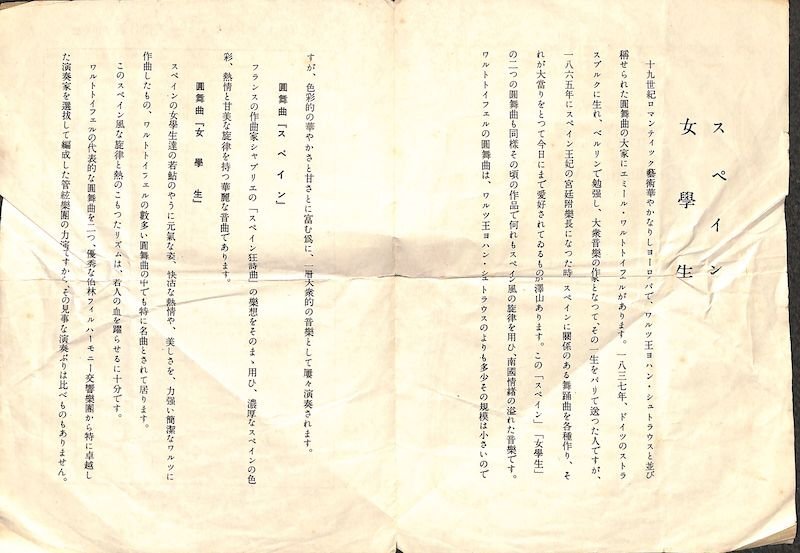 スペイン
女學生
十九世紀ロマンティック藝術華やかなりしヨーロッパで、ワルツ王ヨハン・シュトラウスと並び
稱せられた圓舞曲の大家にエミール・ワルトトイフェルがあります。一八三七年、ドイツのストラ
スブルクに生れ、ベルリンで勉强し、大衆音樂の作家となつて、その一生をパリで送つた人ですが、
一八六五年にスペイン王妃の宮廷附樂長になつた時、スペインに關係のある舞踊曲を各種作り、そ
れが大當りをとつて今日にまで愛好されてゐるものが澤山あります。この「スペイン」「女學生」
の二つの圓舞曲も同樣その頃の作品で何れもスペイン風の旋律を用ひ、南國情緖の溢れた音樂です。
ワルトトイフェルの圓舞曲は、ワルツ王ヨハン・シュトラウスのよりも多少その規模は小さいので
すが、色彩的の華やかさと甘さとに富む爲に、一層大衆的の音樂として屢々演奏されます。
圓舞曲「スペイン」
フランスの作曲家シャブリエの「スペイン狂詩曲」の樂想をそのまゝ用ひ、濃厚なスペインの色
彩、熱情と甘美な旋律を持つ華麗な音曲であります。
圓舞曲「女學生」
スペインの女學生達の若鮎のやうに元氣な姿、快活な熱情や、美しさを、力强い簡潔なワルツに
作曲したもの、ワルトトイフェルの數多い圓舞曲の中でも特に名曲とされて居ります。
このスペイン風な旋律と熱のこもつたリズムは、若人の血を躍らせるに十分です。
ワルトトイフェルの代表的な圓舞曲を二つ、優秀な伯林フィルハーモニー交響樂團から特に卓越し
た演奏家を選拔して編成した管絃樂團の力演ですから、その見事な演奏ぶりは比べものもありません。